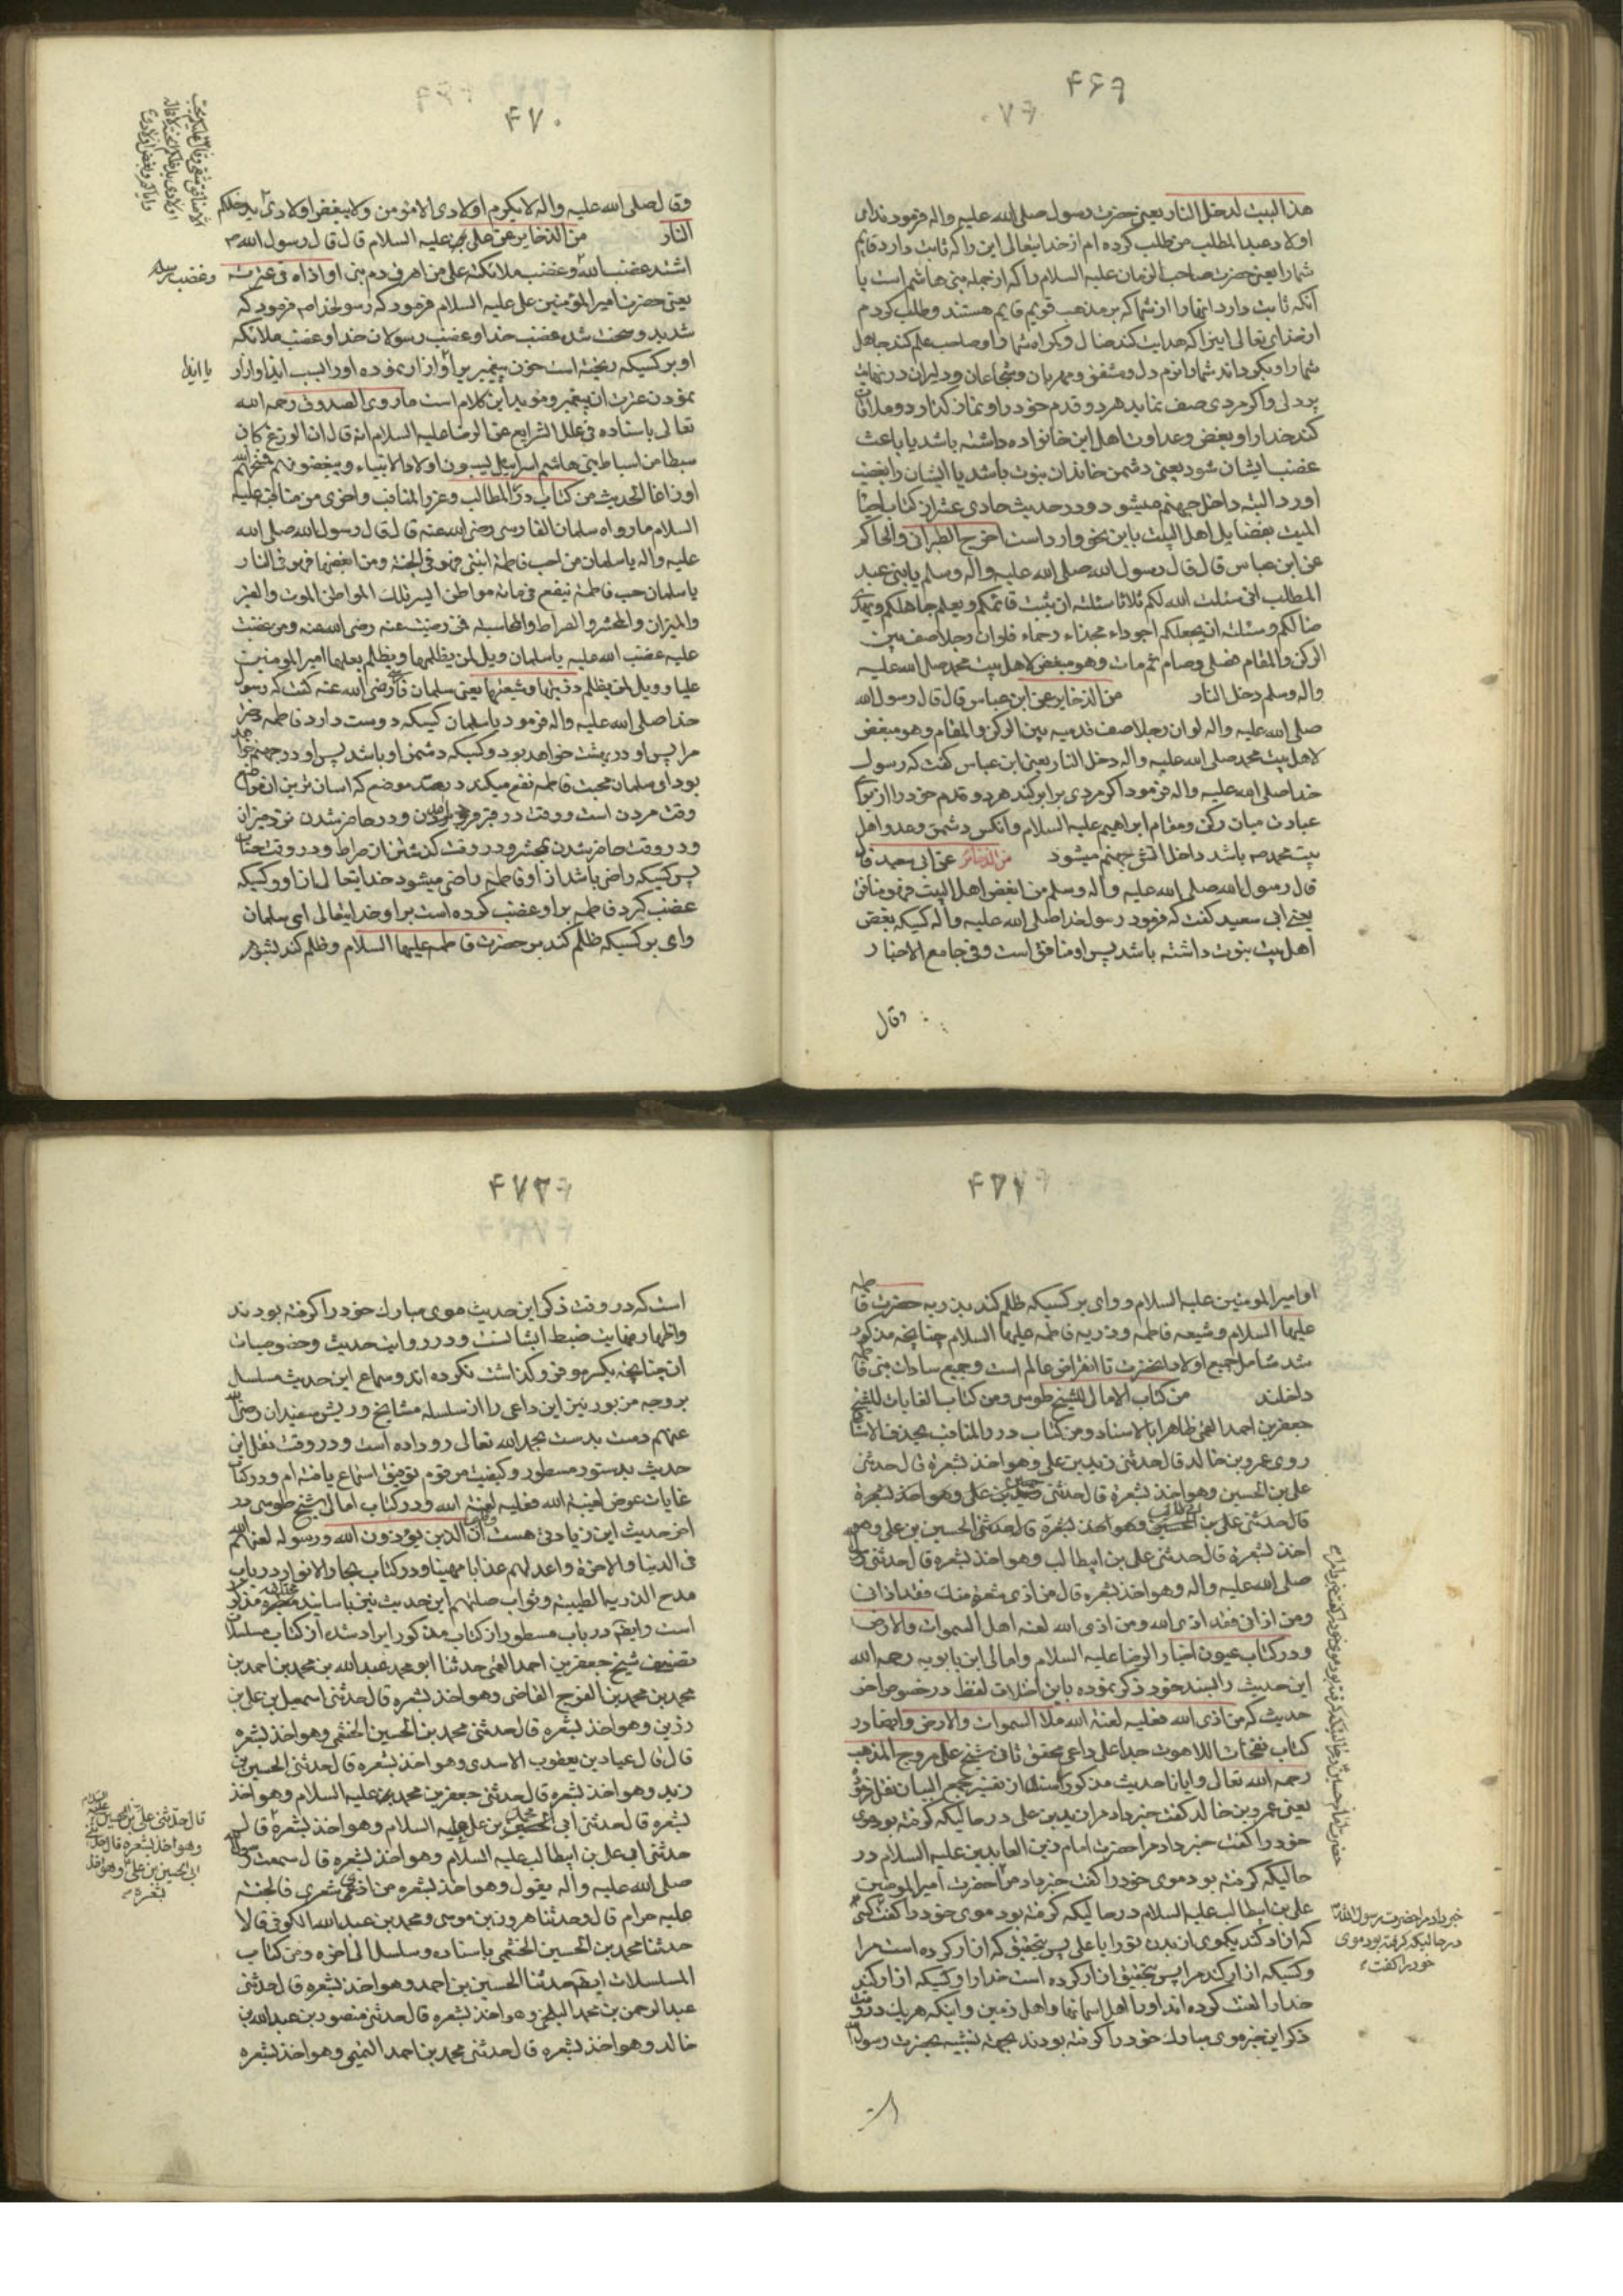 ۴۶۹
هذا البیت لدخل النار یعنی حضرت رسول صلی الله علیه واله فرمود ندای
اولاد عبدالمطلب من طلب کرده ام از خدایتعالی این را که ثابت دارد قایم
شما را یعنی حضرت صاحب الزمان علیه السلام را که از جمله بنی هاشم است یا
آنکه ثابت دارد انها را از شما که بر مذهب قویم قایم هستند و طلب کردم
از خدای تعالی اینرا که هدایت کند ضال و گمراه شما را و صاحب علم کند جاهل
شما را و بگرداند شما را نرم دل و مشفق و مهربان و شجاعان و دلیران در نهایت
پردلی و اگر مردی صف نماید هر دو قدم خود را و نماز گذارد و ملاقات
کند خدا را و بغض و عداوت اهل این خانواده داشته باشد یا باعث
غضب ایشان شود یعنی دشمن خاندان نبوت باشد یا ایشان را بغضب
اورد البته داخل جهنم میشود و در حدیث حادی عشر از کتاب احیاء
المیت بفضایل اهل البیت باین نحو وارد است اخرج الطبرانی والحاکم
عن ابن عباس قال قال رسول الله صلی الله علیه واله وسلم یا بنی عبد
المطلب انی سئلت الله لکم ثلاثا سئلته ان یثبت قائمکم ویعلم جاهلکم ویهدی
ضالکم وسئلته ان یجعلکم اجوداء نجداء رحماء فلو ان رجلا صف بین
الرکن والمقام فصلی وصام ثم مات وهو مبغض لاهل بیت محمد صلی الله علیه
واله وسلم دخل النار من الذخایر عن ابن عباس قال قال رسول الله
صلی الله علیه واله لو ان رجلا صف قدمیه بین الرکن والمقام وهو مبغض
لاهل بیت محمد صلی الله علیه واله دخل النار یعنی ابن عباس گفت که رسول
خدا صلی الله علیه واله فرمود اگر مردی برابر کند هر دو قدم خود را از برای
عبادت میان رکن و مقام ابراهیم علیه السلام و آنکس دشمن و عدو اهل
بیت محمد ص باشد داخل اتش جهنم میشود من الذخایر عن ابی سعید قال
قال رسول الله صلی الله علیه واله وسلم من ابغض اهل البیت فهو منافق
یعنی ابی سعید گفت که فرمود رسول خدا صلی الله علیه واله کسیکه بغض
اهل بیت نبوت داشته باشد پس او منافق است وفی جامع الاخبار
وقال
۴۷۰
وقال صلی الله علیه واله لا یکرم اولادی الا مؤمن ولا یبغض اولادی
النار من الذخایر عن علی علیه السلام قال قال رسول الله ص
اشتد غضب الله وغضب ملائکته علی من اهرق دم نبی او اذاه فی عترته
یعنی حضرت امیرالمؤمنین علی علیه السلام فرمود که رسولخدا ص فرمود که
شدید و سخت شد غضب خدا و غضب رسولان خدا و غضب ملائکه
او بر کسیکه ریخته است خون پیغمبر یرا و ازار نموده او را بسبب ایذا و ازار
یا ایذا
نمودن عترت ان پیغمبر و مؤید این کلام است ما روی الصدوق رحمه الله
تعالی باسناده فی علل الشرایع عن الرضا علیه السلام انه قال ان الوزغ کان
سبطا من اسباط بنی اسرائیل یسبون اولاد الانبیاء ویبغضونهم فمسخهم الله
اوزاغا الحدیث من کتاب درر المطالب وغرر المناقب واخری من مناقبه علیه
السلام ما رواه سلمان الفارسی رضی الله عنه قال قال رسول الله صلی الله
علیه واله یا سلمان من احب فاطمة ابنتی فهو فی الجنة ومن ابغضها فهو فی النار
یا سلمان حب فاطمة ینفع فی مائة مواطن ایسر تلک المواطن الموت والقبر
والمیزان والمحشر والصراط والمحاسبة فمن رضیت عنه رضی الله عنه ومن غضبت
علیه غضب الله علیه یا سلمان ویل لمن یظلمها ویظلم بعلها امیرالمؤمنین
علیا وویل لمن یظلم ذریتها وشیعتها یعنی سلمان فارسی رضی الله عنه گفت که رسول
خدا صلی الله علیه واله فرمود یا سلمان کسیکه دوست دارد فاطمه دختر
مرا پس او در بهشت خواهد بود و کسیکه دشمن او باشد پس او در جهنم خواهد
بود ای سلمان محبت فاطمه نفع میکند در صد موضع که اسان ترین ان مواضع
وقت مردن است و وقت در قبر بودن و در حاضر شدن نزد میزان
و در وقت حاضر شدن بمحشر و در وقت گذشتن از صراط و در وقت حساب
پس کسیکه راضی باشد از او فاطمه راضی میشود خدایتعالی از او و کسیکه
غضب کرد فاطمه بر او غضب کرده است بر او خدایتعالی ای سلمان
وای بر کسیکه ظلم کند بر حضرت فاطمه علیها السلام و ظلم کند بشوهر
۴۷۱
او امیرالمومنین علیه السلام و وای بر کسیکه ظلم کند بذریه حضرت فاطمه
علیها السلام و شیعه فاطمه و ذریه فاطمه علیها السلام چنانچه مذکور
شد شامل جمیع اولاد انحضرت تا انقراض عالم است و جمیع سادات بنی فاطمه
داخلند من کتاب الامالی للشیخ طوسی ومن کتاب الغایات للشیخ
جعفر بن احمد القمی ظاهرا بالاسناد ومن کتاب درر المناقب بحذف الاسناد
روی عمرو بن خالد قال حدثنی زید بن علی وهو اخذ بشعره قال حدثنی
علی بن الحسین وهو اخذ بشعره قال حدثنی حسین بن علی وهو اخذ بشعره
قال حدثنی علی بن ابیطالب وهو اخذ بشعره قال حدثنی الحسین بن علی وهو
اخذ بشعره قال حدثنی علی بن ابیطالب وهو اخذ بشعره قال حدثنی رسول الله
صلی الله علیه واله وهو اخذ بشعره قال من اذی شعرة منک فقد اذانی
ومن اذانی فقد اذی الله ومن اذی الله لعنه اهل السموات والارض
و در کتاب عیون اخبار الرضا علیه السلام و امالی ابن بابویه رحمه الله
این حدیث را بسند خود ذکر نموده باین اختلاف لفظ در خصوص اخر
حدیث که من اذی الله فعلیه لعنة الله ملأ السموات والارض و ایضا در
کتاب نفحات اللاهوت جد اعلی داعی محقق ثانی شیخ علی مروج المذهب
رحمه الله تعالی وایانا حدیث مذکور از تفسیر مجمع البیان نقل فرموده
یعنی عمرو بن خالد گفت خبر داد مرا زید بن علی در حالیکه گرفته بود موی
خود را گفت خبر داد مرا حضرت امام زین العابدین علیه السلام در
حالیکه گرفته بود موی خود را گفت خبر داد مرا حضرت امیرالمومنین
علی بن ابیطالب علیه السلام در حالیکه گرفته بود موی خود را گفت کسی
که ازار کند یکموی از بدن تو را یا علی پس بتحقیق که ازار کرده است مرا
و کسیکه ازار کند مرا پس بتحقیق ازار کرده است خدا را و کسیکه ازار کند
خدا را لعنت کرده اند او را اهل اسمانها و اهل زمین و اینکه هر یک در وقت
ذکر این خبر موی مبارک خود را گرفته بودند بجهة تشبیه بحضرت رسول الله
خبر داد مرا حضرت رسول الله
در حالیکه گرفته بود موی
خود را گفت
۴۷۲
است که در وقت ذکر این حدیث موی مبارک خود را گرفته بودند
و اظهار نهایت ضبط ایشانست و در روایت حدیث و خصوصیات
ان چنانچه یکسر مو فروگذاشت نکرده اند و سماع این حدیث مسلسل
بر وجه مزبور نیز این داعی را از سلسله مشایخ و ریش سفیدان رضی الله
عنهم دست بدست بحمدالله تعالی رو داده است و در وقت نقل این
حدیث بدستور مسطور و کیفیت مرقوم توفیق استماع یافته ام و در کتاب
غایات عوض لعنه الله فعلیه لعنة الله و در کتاب امالی شیخ طوسی در
اخر حدیث این زیادتی هست ان الذین یؤذون الله ورسوله لعنهم الله
فی الدنیا والاخرة واعد لهم عذابا مهینا و در کتاب بحار الانوار در باب
مدح الذریة الطیبة وثواب صلتهم این حدیث نیز باسانید معتبره مذکور
است و ایضا در باب مسطور از کتاب مذکور ایراد شده از کتاب مسلسلات
تصنیف شیخ جعفر بن احمد القمی حدثنا ابو محمد عبدالله بن محمد بن احمد بن
محمد بن محمد بن الفرج القاضی وهو اخذ بشعره قال حدثنی اسمعیل بن علی بن
رزین وهو اخذ بشعره قال حدثنی محمد بن الحسین الخثعمی وهو اخذ بشعره
قال قال عباد بن یعقوب الاسدی وهو اخذ بشعره قال حدثنی الحسین بن
زید وهو اخذ بشعره قال حدثنی جعفر بن محمد علیه السلام وهو اخذ
بشعره قال حدثنی ابی محمد بن علی علیه السلام وهو اخذ بشعره قال
قال حدثنی علی بن الحسین علیه السلام
وهو اخذ بشعره قال حدثنی
ابی الحسین بن علی وهو اخذ
بشعره
حدثنی ابی علی بن ابیطالب علیه السلام وهو اخذ بشعره قال سمعت رسول الله
صلی الله علیه واله یقول وهو اخذ بشعره من اذی شعری فالجنة
علیه حرام قال وحدثنا هرون بن موسی ومحمد بن عبدالله الکوفی قالا
حدثنا محمد بن الحسین الخثعمی باسناده وسلسل الی اخره ومن کتاب
المسلسلات ایضا حدثنا الحسین بن احمد وهو اخذ بشعره قال حدثنی
عبدالرحمن بن محمد البلخی وهو اخذ بشعره قال حدثنی منصور بن عبدالله بن
خالد وهو اخذ بشعره قال حدثنی محمد بن احمد التمیمی وهو اخذ بشعره